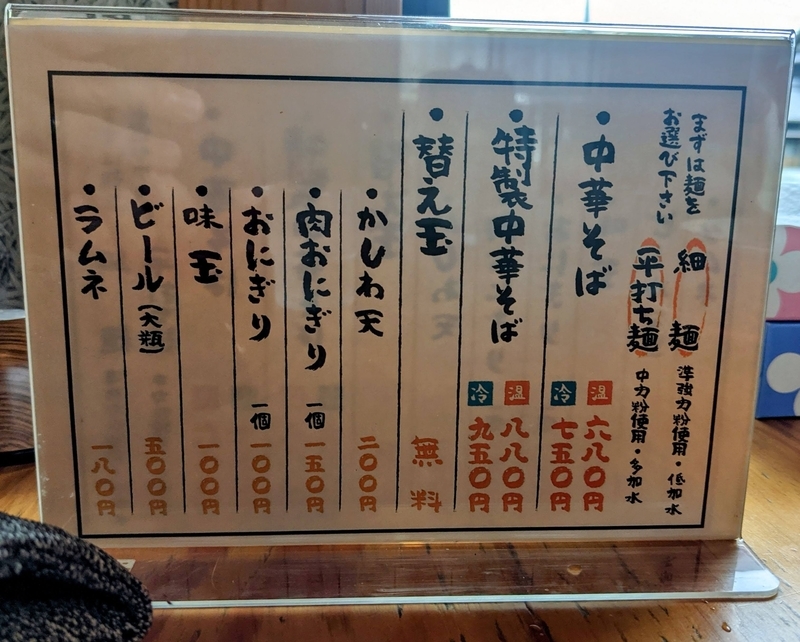 まずは麺を
お選び下さい
細麺 準強力粉使用・低加水
平打ち麺 中力粉使用・多加水
・中華そば 温 六八〇円
冷 七五〇円
・特製中華そば 温 八八〇円
冷 九五〇円
・替え玉 無料
・かしわ天 二〇〇円
・肉おにぎり 一個 一五〇円
・おにぎり 一個 一〇〇円
・味玉 一〇〇円
・ビール(大瓶) 五〇〇円
・ラムネ 一八〇円